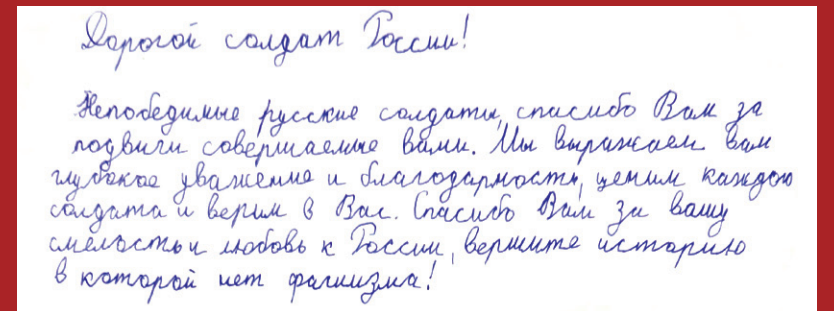 Дорогой солдат России!
Непобедимые русские солдаты, спасибо Вам за
подвиги совершаемые вами. Мы выражаем вам
глубокое уважение и благодарность, ценим каждого
солдата и верим в Вас. Спасибо Вам за вашу
смелость и любовь к России, вершите историю
в которой нет фашизма!